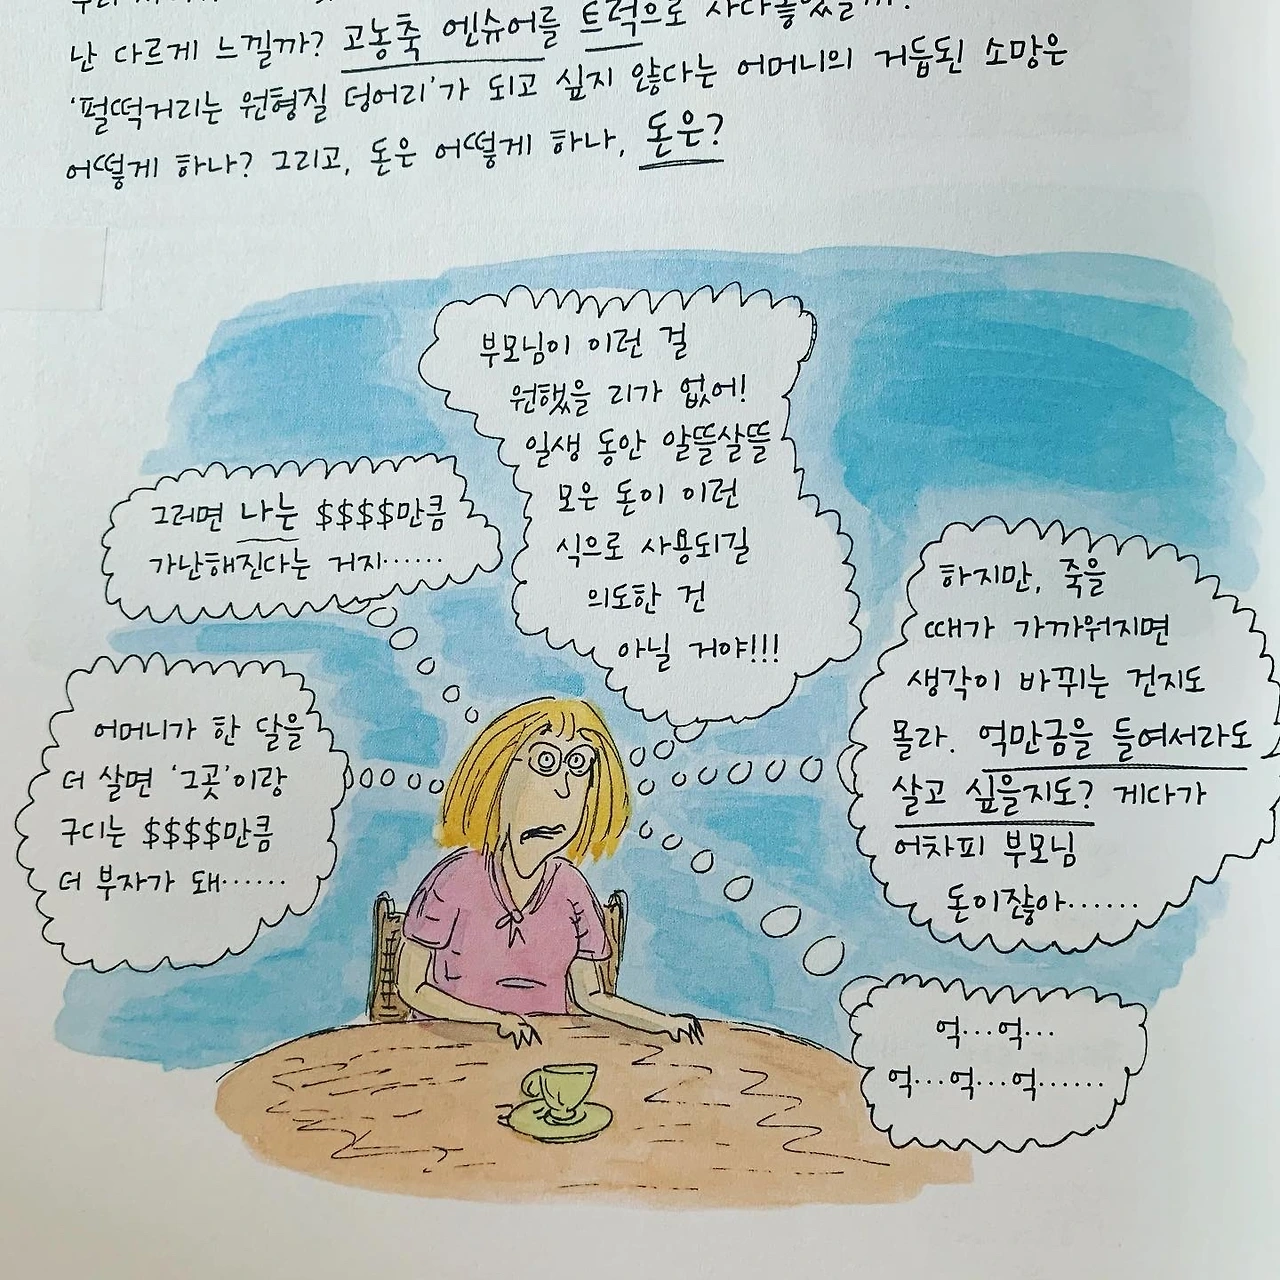 난 다르게 느낄까? 고농축 엔슈어를 트럭으로
'펄떡거리는 원형질 덩어리'가 되고 싶지 않다는 어머니의 거듭된 소망은
어떻게 하나? 그리고, 돈은 어떻게 하나, 돈은?
부모님이 이런 걸
원했을 리가 없어!
일생 동안 알뜰살뜰
모은 돈이 이런
식으로 사용되길
의도한 건
아닐 거야!!!
그러면 나는 $$$$만큼
가난해진다는 거지……
어머니가 한 달을
더 살면 '그곳'이랑
구디는 $$$$만큼
더 부자가 돼……
하지만, 죽을
때가 가까워지면
생각이 바뀌는 건지도
몰라. 억만금을 들여서라도
살고 싶을지도? 게다가
어차피 부모님
돈이잖아……
억…억…
억…억…억……